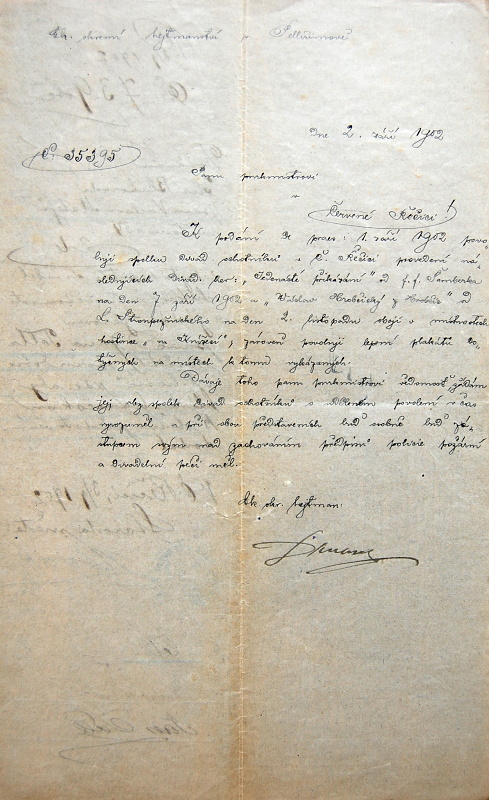 Kk. okresní hejtmanství v Pelhřimově
Dne 2. září 1902
Č. 35395
Panu purkmistrovi
v
Červené Řečici!
K podání de praes: 1. září 1902 povo-
luji spolku divad. ochotníků v Č. Řečici provedení ná-
sledujících divad. her: „Jedenácté přikázání" od F. F. Šamberka
na den 7. září 1902 a „Václav Hrobčický z Hrobčic" od
L. Stroupežnického na den 2. listopadu v místnostech
hostince „na Knížecí", zároveň povoluji lepení plakátů do-
tyčných na místech k tomu vykázaných.
Dávaje toho panu purkmistrovi vědomost žádám
jej, aby spolek divad. ochotníků o uděleném povolení včas
vyrozuměl a při obou představeních buď osobně buď zá-
stupcem svým nad zachováním předpisů policie požární
a divadelní péči měl.
Kk. okr. hejtman: